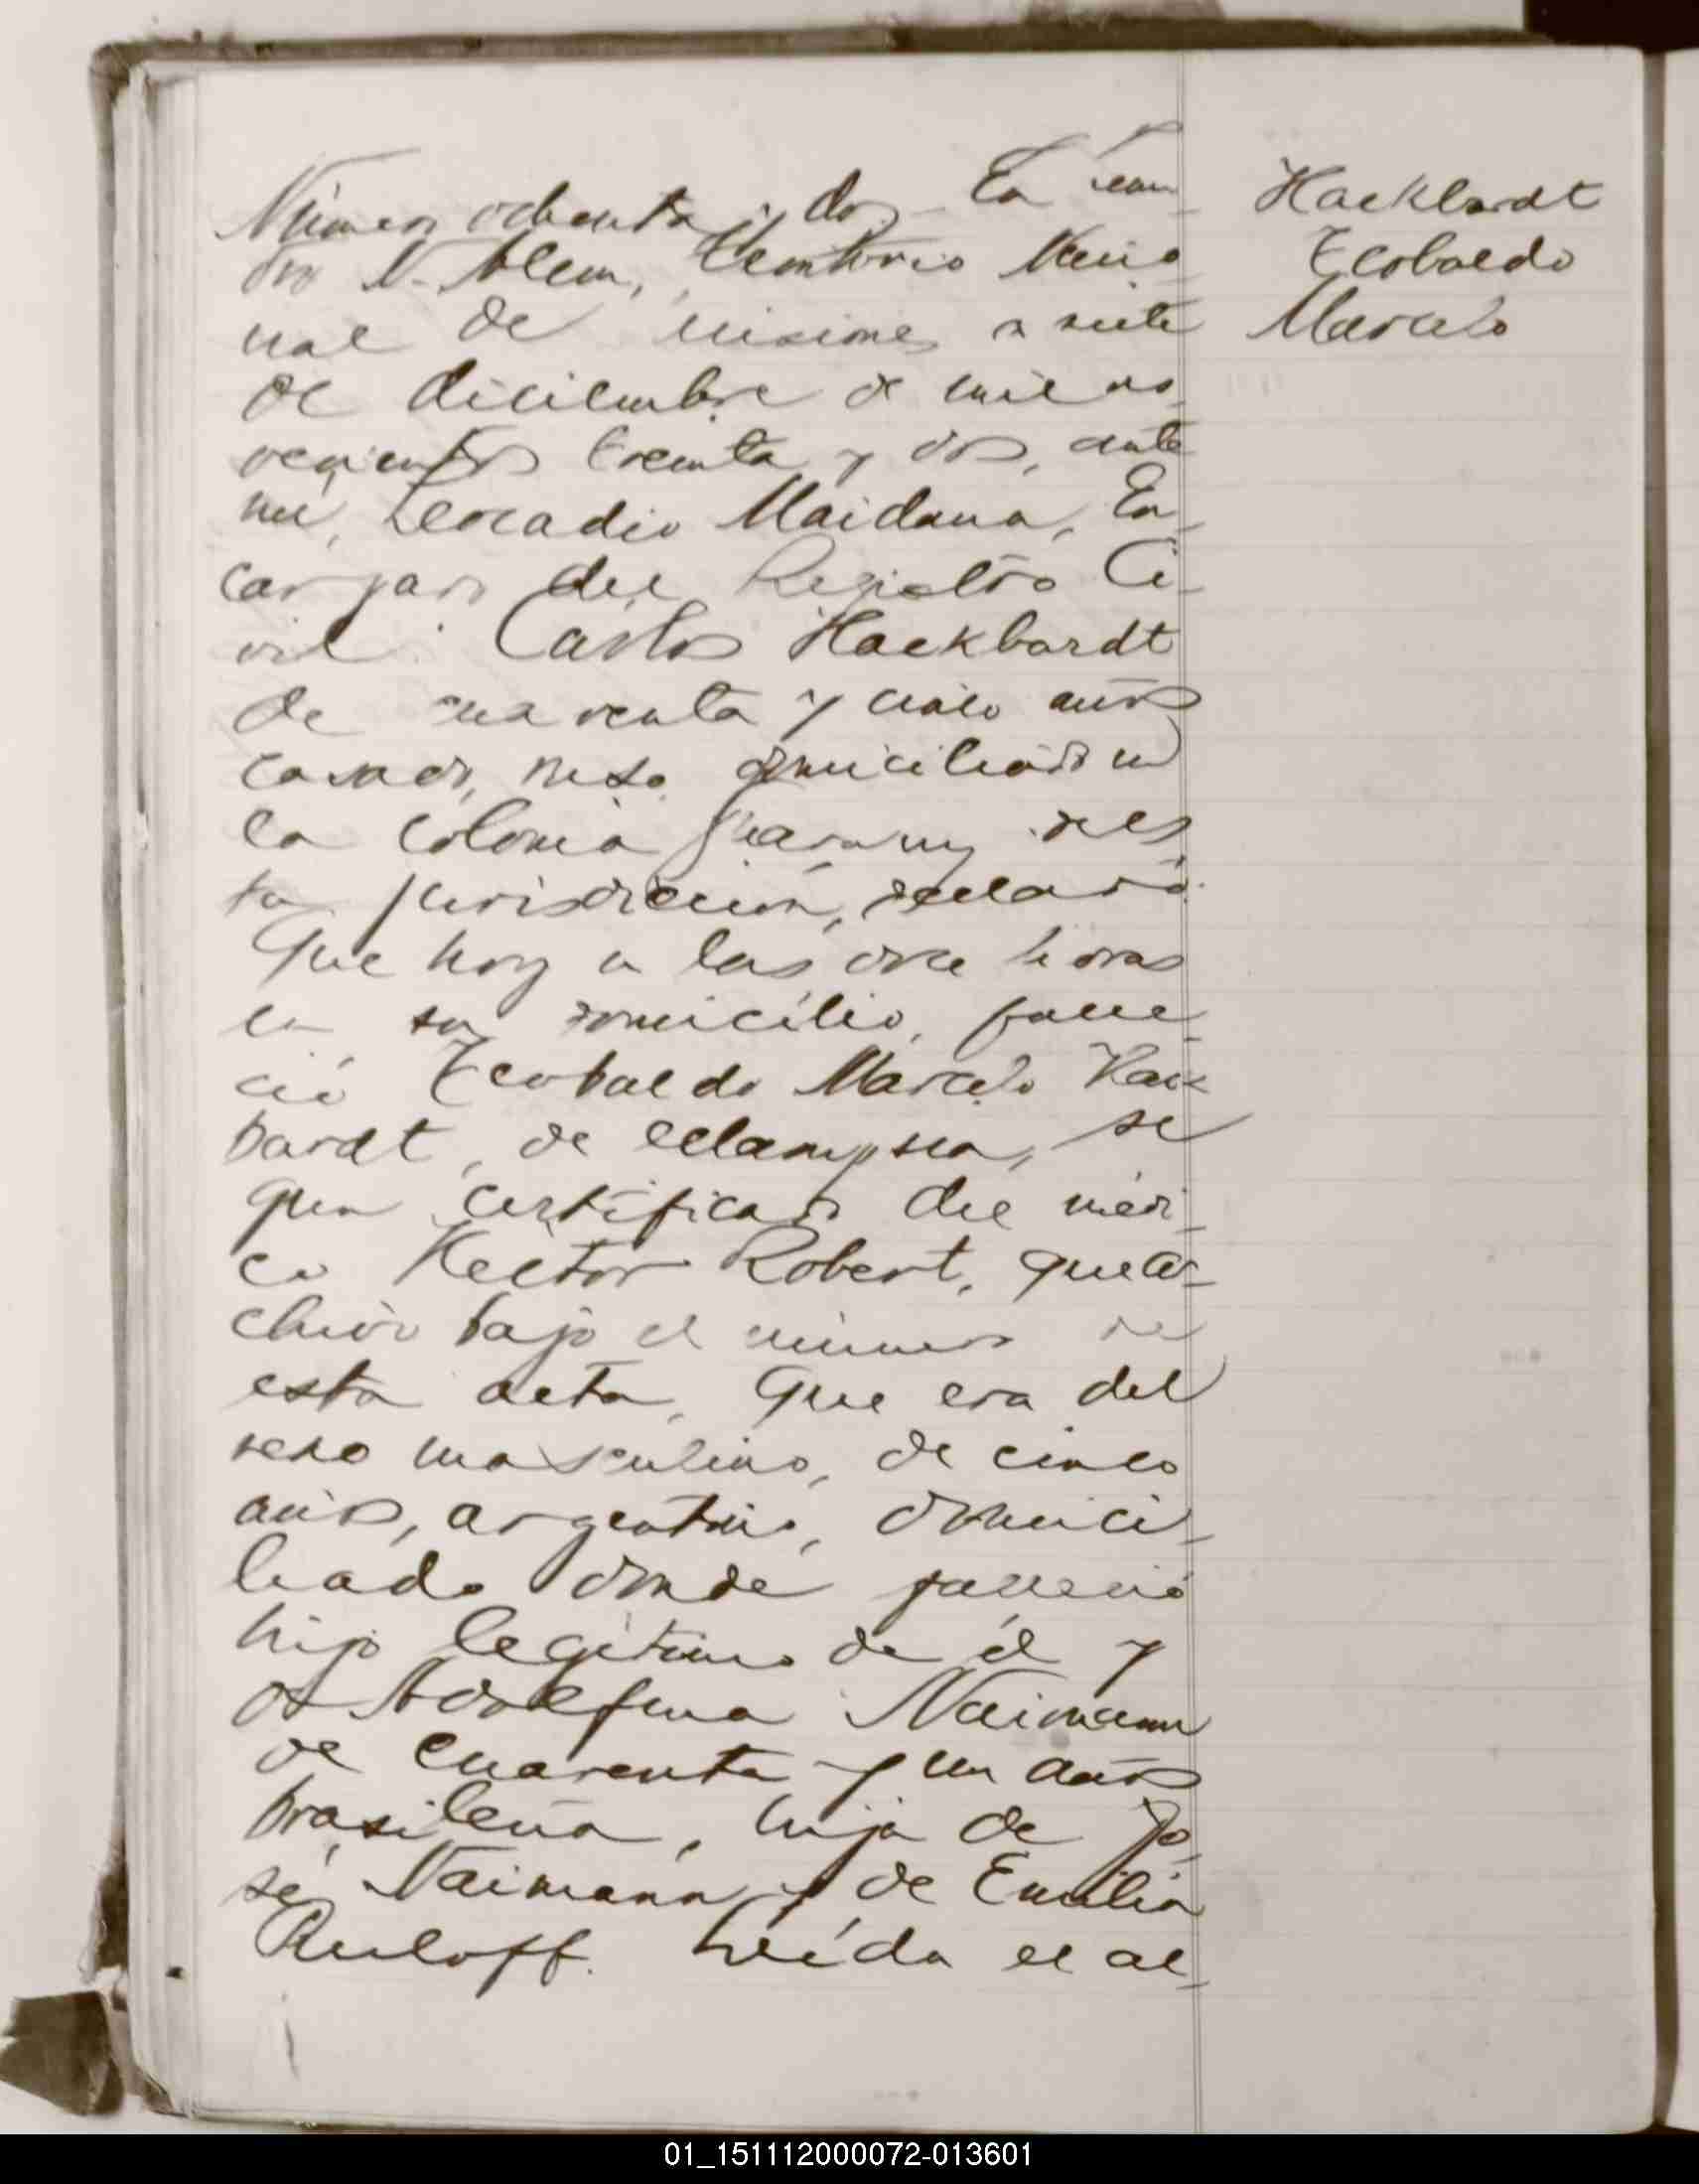 Hackbardt
Teobaldo
Marcelo
Número ochenta y dos. En Lean
dro N. Alem, territorio Nacio
nal de Misiones a siete
de diciembre de mil no
vecientos treinta y dos, ante
mi, Leocadio Maidana, En
cargado del Registro Ci
vil: Carlos Hackbardt
de cuarenta y cinco años
casado, ruso domiciliado en
la colonia Guarany de es
ta jurisdicción, declaró:
Que hoy a las once horas
en su domicilio, falle
ció Teobaldo Marcelo Hack
bardt, de eclampsia, se
gun certificado del médi
co Hector Robert, que ar
chivo bajo el número de
esta acta, Que era del
sexo masculino, de cinco
años, argentino, domici
liado donde falleció
hijo legítimo de él y
de Adolfina Naimann
de cuarenta y un años
brasileña, hija de Jo
sé Naimann y de Emilia
Ruloff. Leída el ac
01_151112000072-013601